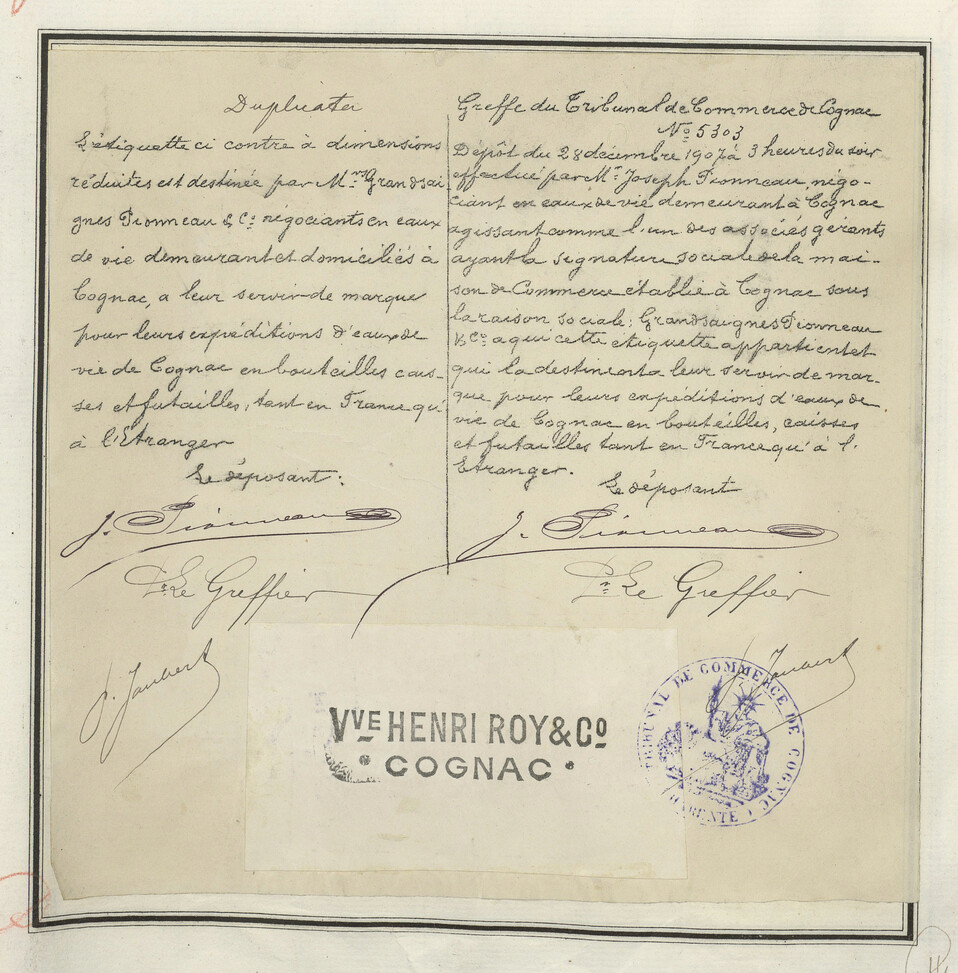 Duplicata
L'étiquette ci contre à dimensions
réduites est destinée par Mrs Grandsai
gnes Pionneau & Co. négociants en eaux
de vie demeurant et domiciliés à
Cognac, a leur servir de marque
pour leurs expéditions d'eaux de
vie de Cognac en bouteilles cais-
ses et futailles, tant en France qu'
à l'Etranger
Le déposant:
J. Pionneau
Pr. Le Greffier
J. Jaubert
Greffe du Tribunal de Commerce de Cognac
No 5303
Dépôt du 28 décembre 1907 à 3 heures du soir
effectué par Mr. Joseph Pionneau, négo-
ciant en eaux de vie demeurant à Cognac
agissant comme l'un des associés gérants
ayant la signature sociale de la mai-
son de Commerce établie à Cognac sous
la raison sociale; Grandsaignes Pionneau
& Co. a qui cette etiquette appartient et
qui la destinent a leur servir de mar-
que pour leurs expéditions d'eaux de
vie de Cognac en bouteilles, caisses
et futailles tant en France qu'à l'
Etranger.
Le déposant
J. Pionneau
Pr. Le Greffier
J. Jaubert
VVE HENRI ROY & CO
COGNAC
TRIBUNAL DE COMMERCE DE COGNAC
CHARENTE